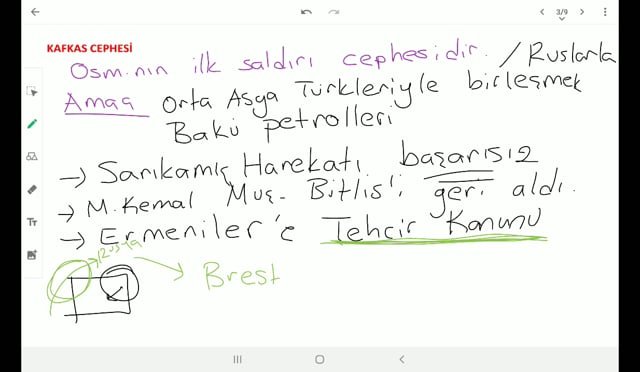 3/9
KAFKAS CEPHESİ
Osm.nın ilk saldırı cephesidir. / Ruslarla
Amaç Orta Asya Türkleriyle birleşmek
Bakü petrolleri
→ Sarıkamış Harekatı başarısız
→ M. Kemal Muş - Bitlis'i geri aldı.
→ Ermeniler'e Tehcir Kanunu
Rusya
Brest
Tт